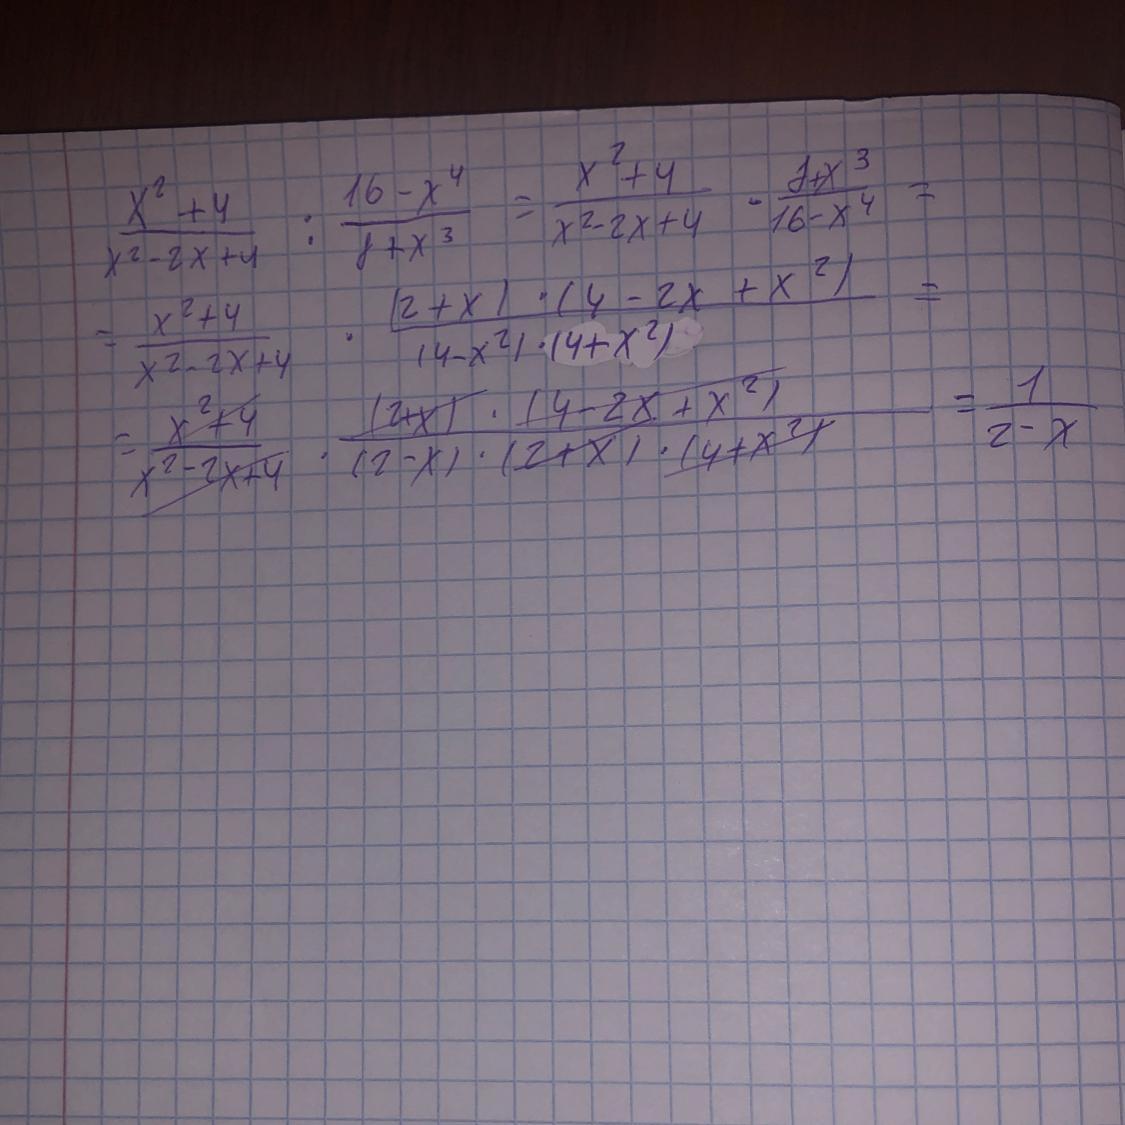 x²+4 / x²-2x+4 : 16-x⁴ / 8+x³ = x²+4 / x²-2x+4 · 8+x³ / 16-x⁴ =
= x²+4 / x²-2x+4 · (2+x)·(4-2x+x²) / (4-x²)·(4+x²) =
= x²+4 / x²-2x+4 · (2+x)·(4-2x+x²) / (2-x)·(2+x)·(4+x²) = 1 / 2-x